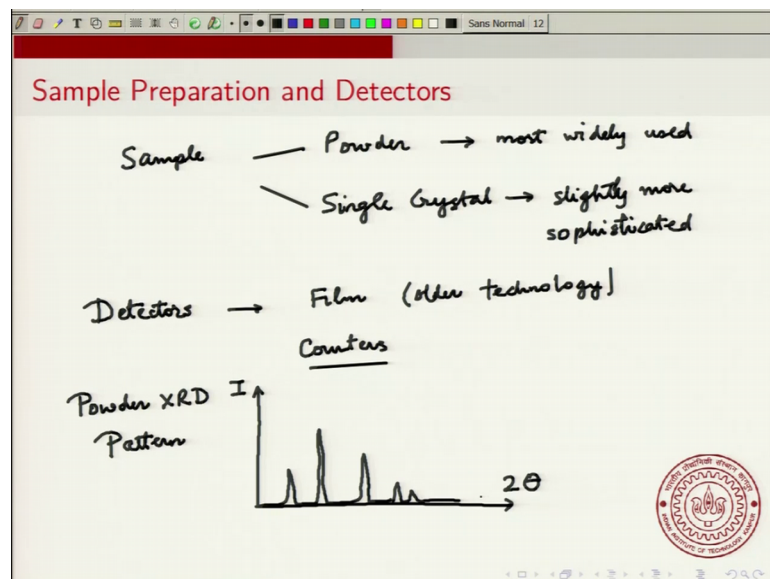 Sans Normal 12
Sample Preparation and Detectors
Sample
Powder → most widely used
Single Crystal → slightly more
sophisticated
Detectors → Film (older technology)
Counters
Powder XRD
Pattern
I
2θ
INDIAN INSTITUTE OF TECHNOLOGY KANPUR